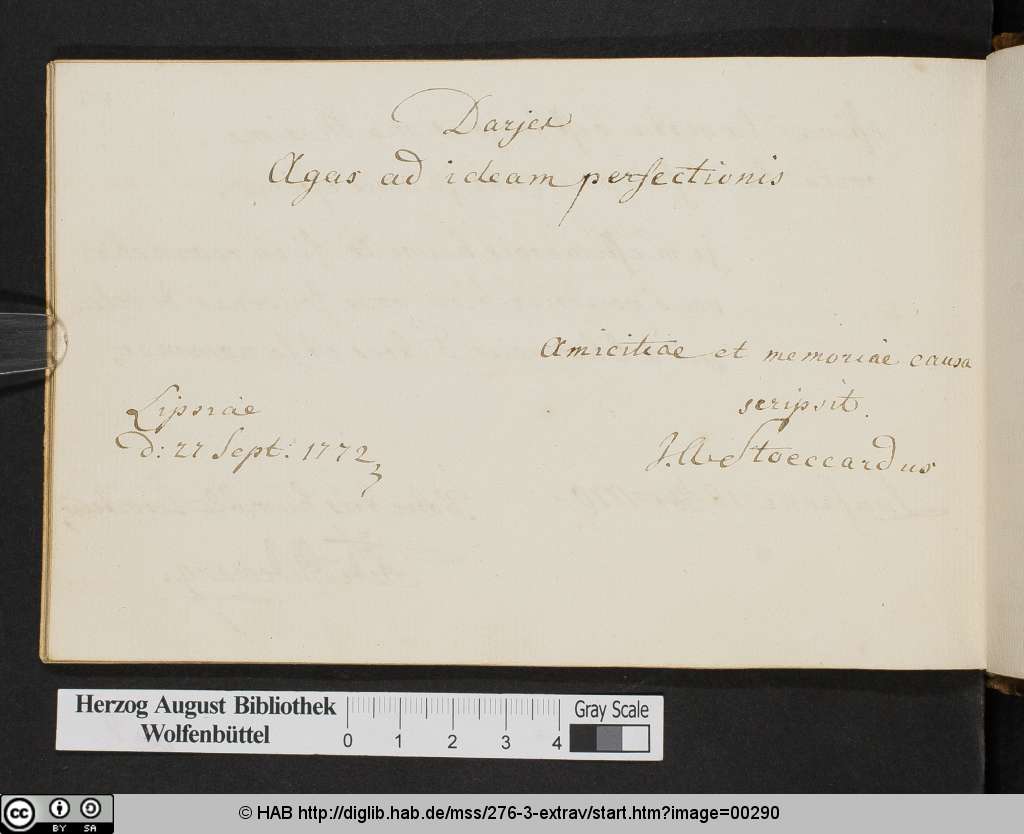 Darjes
Agas ad ideam perfectionis
Amicitiae et memoriae causa
scripsit.
J. A. Stoeccardus
Lipsiae
d: 27 Sept: 1772
Herzog August Bibliothek
Wolfenbüttel
0 1 2 3 4
Gray Scale
cc BY SA
© HAB http://diglib.hab.de/mss/276-3-extrav/start.htm?image=00290